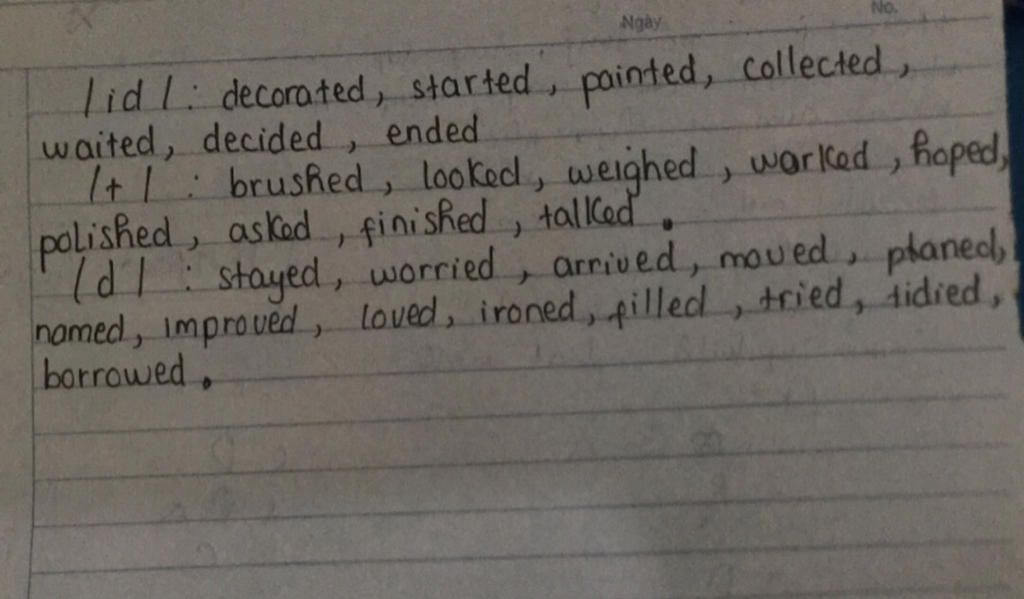 Ngày
No.
/id/: decorated, started, painted, collected,
waited, decided, ended
/t/: brushed, looked, weighed, worked, hoped,
polished, asked, finished, talked.
/d/: stayed, worried, arrived, moved, planed,
named, improved, loved, ironed, filled, tried, tidied,
borrowed.